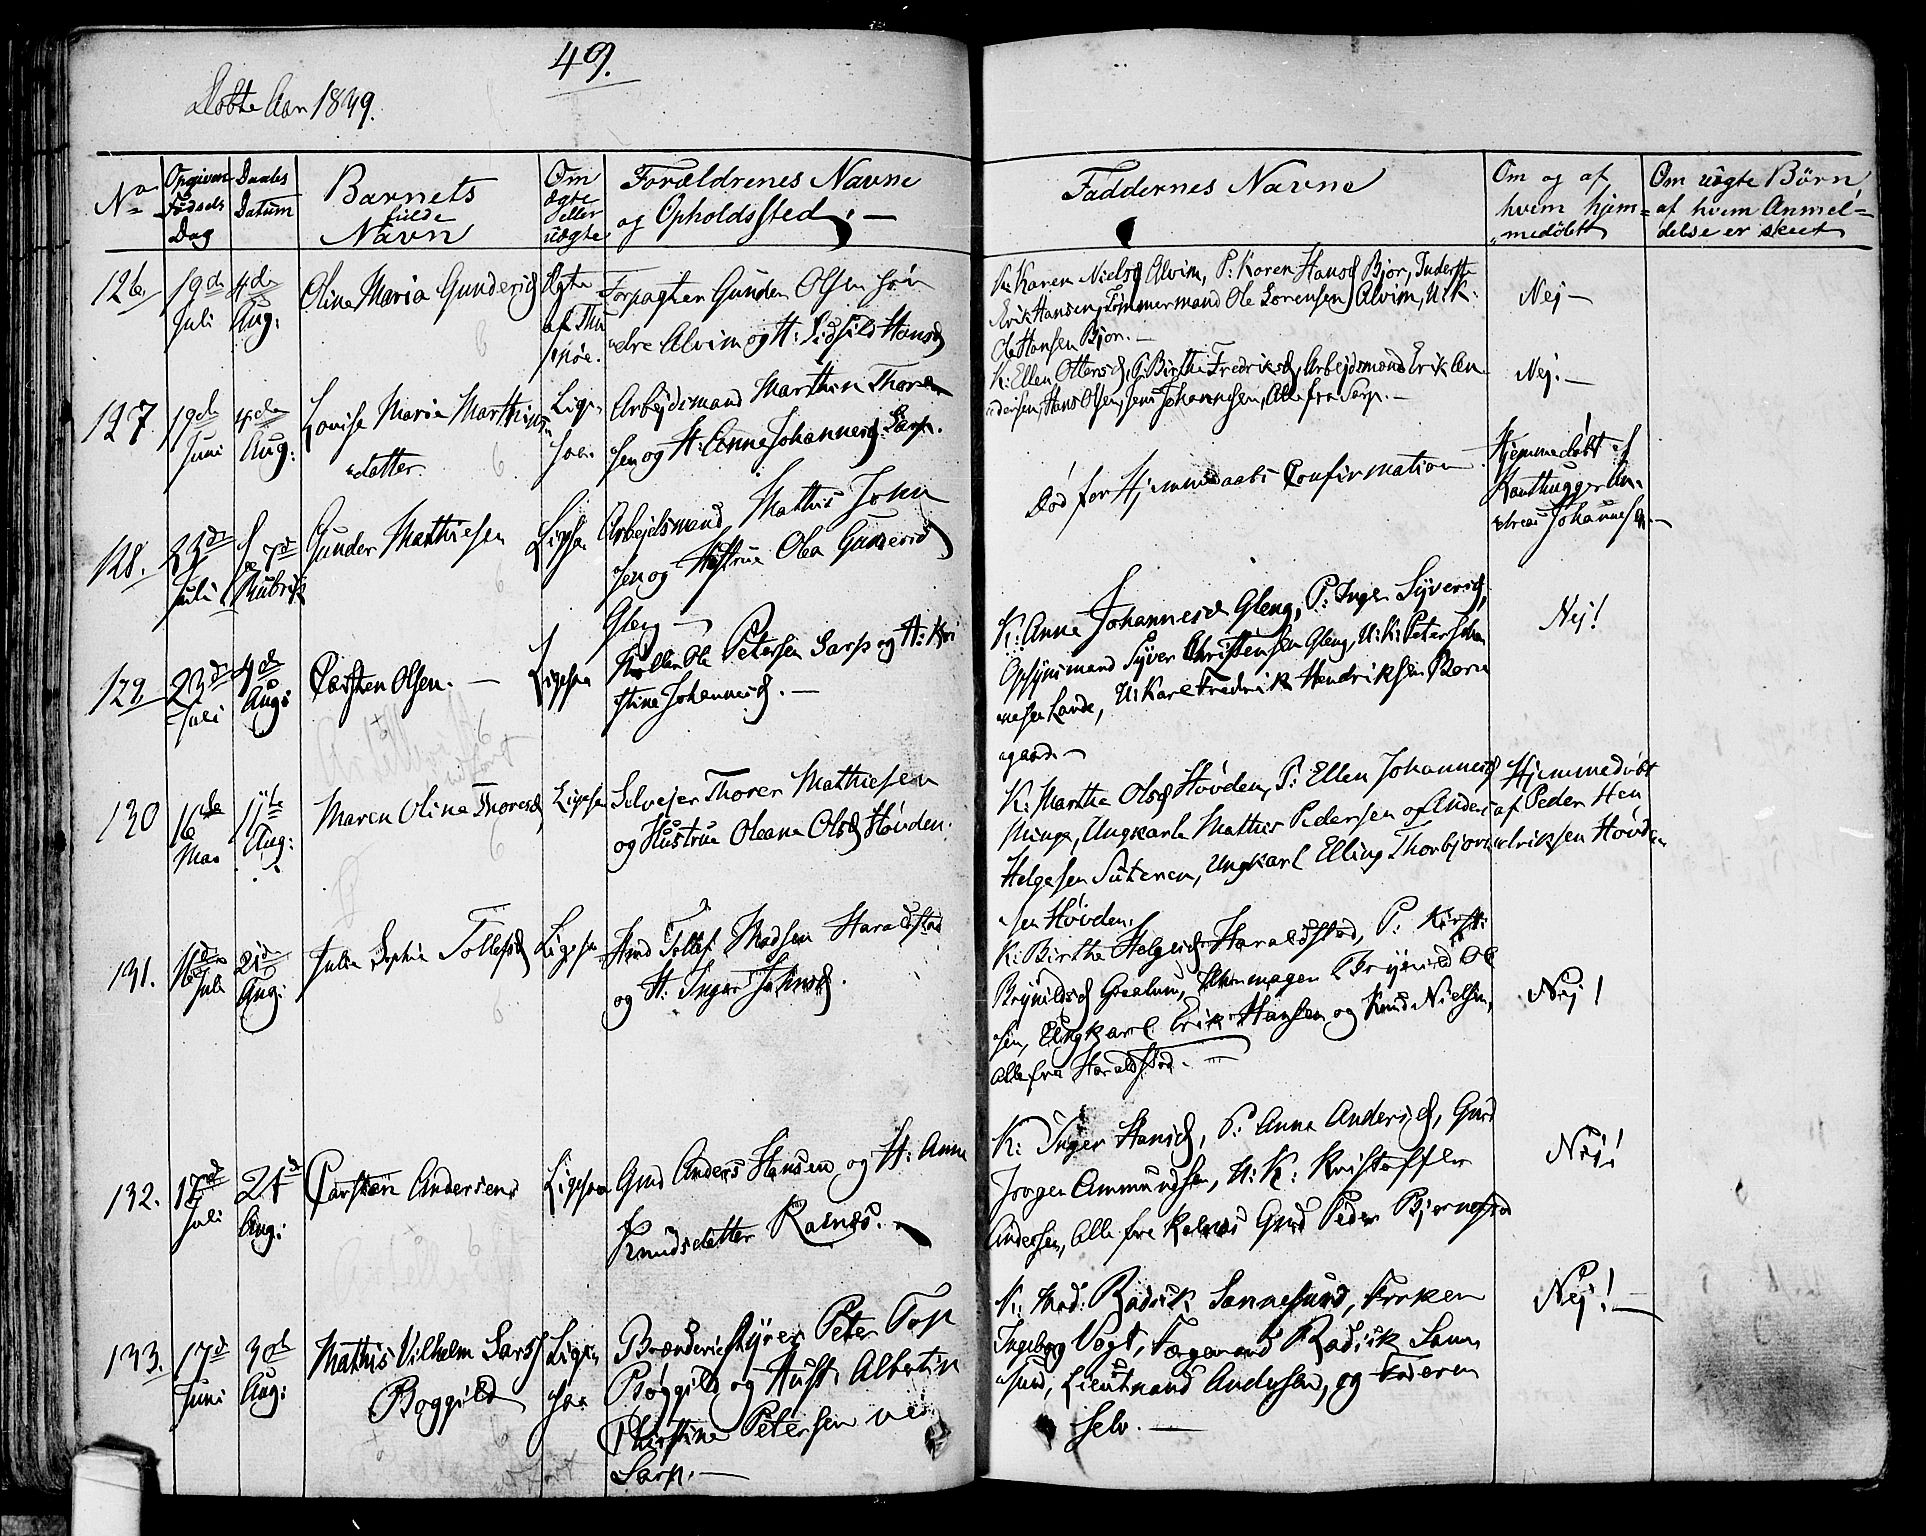 49.
Døbte Aar 1839.
No
Opgiven Fødsels Dag
Daabs Datum
Barnets fulde Navn
Om ægte eller uægte
Forældrenes Navne og Opholdssted.
Faddernes Navne
Om og af hvem hjem= medøbt
Om uægte Børn, af hvem Anmel= delse er skeet
126.
19de Juli
4de Aug:
Olina Maria Gundersd
Ægte
Forpagter Gunder Olsen
Alvim og H: Hansd
K: Karen Nielsd Alvim, P: Karen Hansd Bjør,
Erik Hansen, Tømmermand Ole Sørensen Alvim, U: K:
Ole Hansen Bjør. —
Nej —
127.
19de Juni
4de Aug:
Lovise Maria Marthins
datter
Lige-
saa.
Arbejdsmand Marthin Thor
sen og H: Anne Johannesd: Sarp.
K: Ellen Ottersd, P: Birthe Fredriksd, Arbejdsmand Erik An
dersen, Hans Olsen, Jens Johannesen, Alle fra Sarp. —
Nej. —
128.
23de Juli
7d
Rubrik
Gunder Mathiesen
Ligesaa
Arbejdsmand Mathis John
sen og Hustrue Olea Gundersd
Gleng —
Død før Hjemmedaabs Confirmation
Hjemmedøbt af
An-
dreas Johannesen —
129
23de Juli
4de Aug:
Carsten Olsen. —
Ligesaa
Ole Petersen Sarp og H: Kri
stine Johannesd. —
K: Anne Johannesd Gleng, P: Inger Syversd,
Opsynsmand Syver Christensen Gleng, U: K: Peter Johan
nesen Lande, U: Karl Fredrik Hendriksen Born
gaard —
Nej!
130
16de Mai
11te Aug:
Maren Olina Thoresd
Ligesaa
Selvejer Thorer Mathiesen
og Hustrue Oleana Olsd Høvden.
K: Marthe Olsd Høvden, P: Ellen Johannesd
Minge, Ungkarle Mathis Pedersen og Anders
Helgesen Suteren, Ungkarl Elling Thorbjørn
sen Høvden.
Hjemmedøbt
af Peder Hen
driksen Høvden
131.
16de Juli
21de Aug:
Julia Sophia Tollefsd
Ligesaa
Tollef Madsen Haraldstad
og H: Inger Johnsd.
K: Birthe Helgesd Haraldstad, P: Kirsti
Brynildsd Grealum, Brynild Ol
sen, Ungkarl Erik Hansen og Knud Nielsen,
Alle fra Haraldstad. —
Nej!
132.
17de Juli
21d Aug:
Carsten Andersen
Ligesaa
Gmd Anders Hansen og H: Anne
Knudsdatter Kalnæs. —
K: Inger Hansd, P: Anna Andersd, Gmd
Jørgen Ammundsen, U: K: Kristoffer
Andersen, Alle fra Kalnæs Gmd Peder Bjørnestad
Nej!
133.
17de Juni
30de Aug:
Mathis Vilhelm Sarp
Bøggild
Lige-
saa
Brænderibestyrer Peter
Bøggild og Hust: Albertin
Christine Petersen ved
Sarp. —
K: Mad: Radich Sannesund, Frøken
Ingeborg Vogt, Færgemand Radich Sanne
sund, Lieutnand Andersen, og Faderen
selv. —
Nej! —